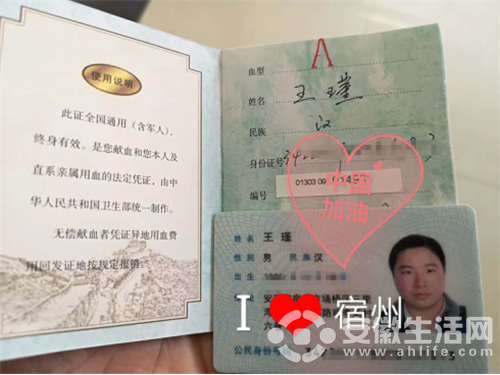 使用说明
此证全国通用（含军人），
终身有效。是您献血和您本人及
直系亲属用血的法定凭证，由中
华人民共和国卫生部统一制作。
无偿献血者凭证异地用血费
用回发证地按规定报销。
血型 A
姓名 王瑾
民族 汉
身份证号
编号 01303 09
中国
加油
姓名 王瑾
性别 男 民族 汉
出生
I 宿州
公民身份号
安徽生活网
www.ahlife.com